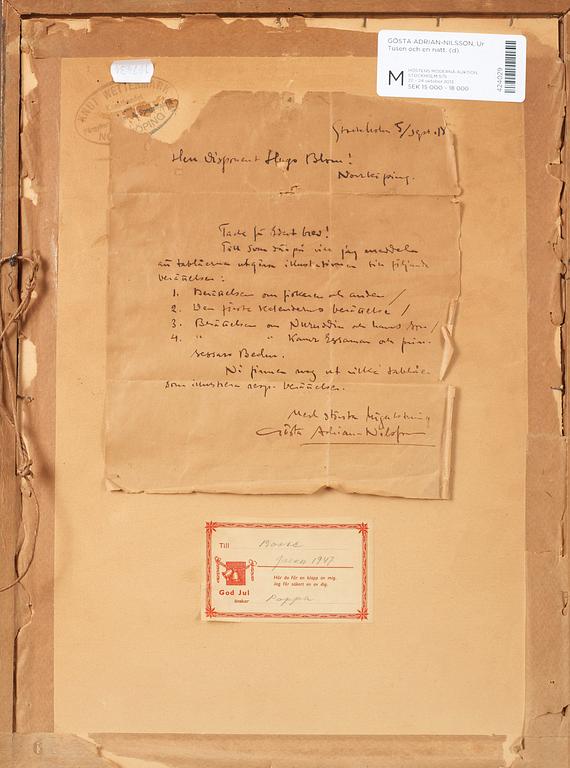 GÖSTA ADRIAN-NILSSON, Ur
Tusen och en natt. (d)
M
HÖSTENS MODERNA AUKTION,
STOCKHOLM 575
22 - 24 oktober 2013
SEK 15 000 - 18 000
424029
KNUT WETTERMARK
NORRKÖPING
Stockholm 5/sept.
Herr Disponent Hugo Blom!
Norrköping.
Tack för Edert brev!
Till som därpå vill jag meddela
att tablåerna utgöra illustrationer till följande
berättelser:
1. Berättelsen om fiskaren och anden/
2. Den förste Kalenderns berättelse/
3. Berättelsen om Nureddin och hans son/
4. " " Kamr Essaman och prin-
sessan Bedur.
Ni finner nog ut vilka tablåer
som illustrera resp. berättelse.
Med största högaktning
Gösta Adrian-Nilsson
Till Bosse
Julen 1947
Här du får en klapp av mig.
Jag får säkert en av dig.
God Jul
önskar Pappa